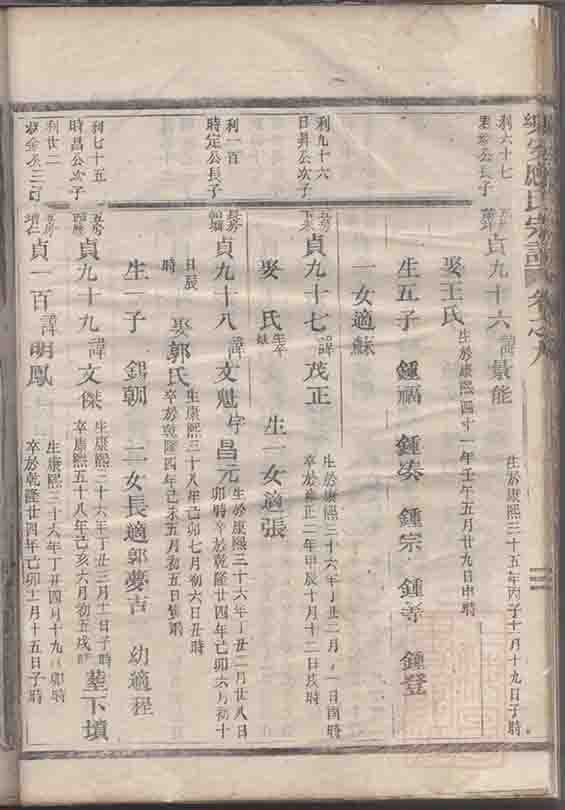 應氏宗譜
利六十七
公長子
貞九十六 諱景能
生於康熙三十五年丙子十月十九日子時
娶王氏 生於康熙四十一年壬午五月廿九日申時
生五子 鍾福 鍾奏 鍾宗 鍾孝 鍾登
一女適蘇
利九十六
日昇公次子
貞九十七 諱茂正
生於康熙三十六年丁丑二月 一日酉時
卒於雍正二年甲辰十月十二日戌時
娶 氏 生一女適張
利一百
時定公長子
長房
貞九十八 諱文魁 字昌元
生於康熙三十六年丁丑二月廿八日
卯時卒於乾隆廿四年己卯六月初十
日辰
時
娶郭氏
生康熙三十八年己卯七月初六日丑時
卒於乾隆四年己未五月初五日 時
生一子 錦朝 二女長適郭夢吉 幼適程
利七十五
時昌公次子
五房
貞九十九 諱文傑
生康熙三十六年丁丑三月 日子時
卒康熙五十八年己亥六月初五戌時
葬下墳
利廿二
五房
貞一百 諱明鳳
生康熙三十六年丁丑四月十九日卯時
卒於乾隆廿四年己卯 月十五日子時